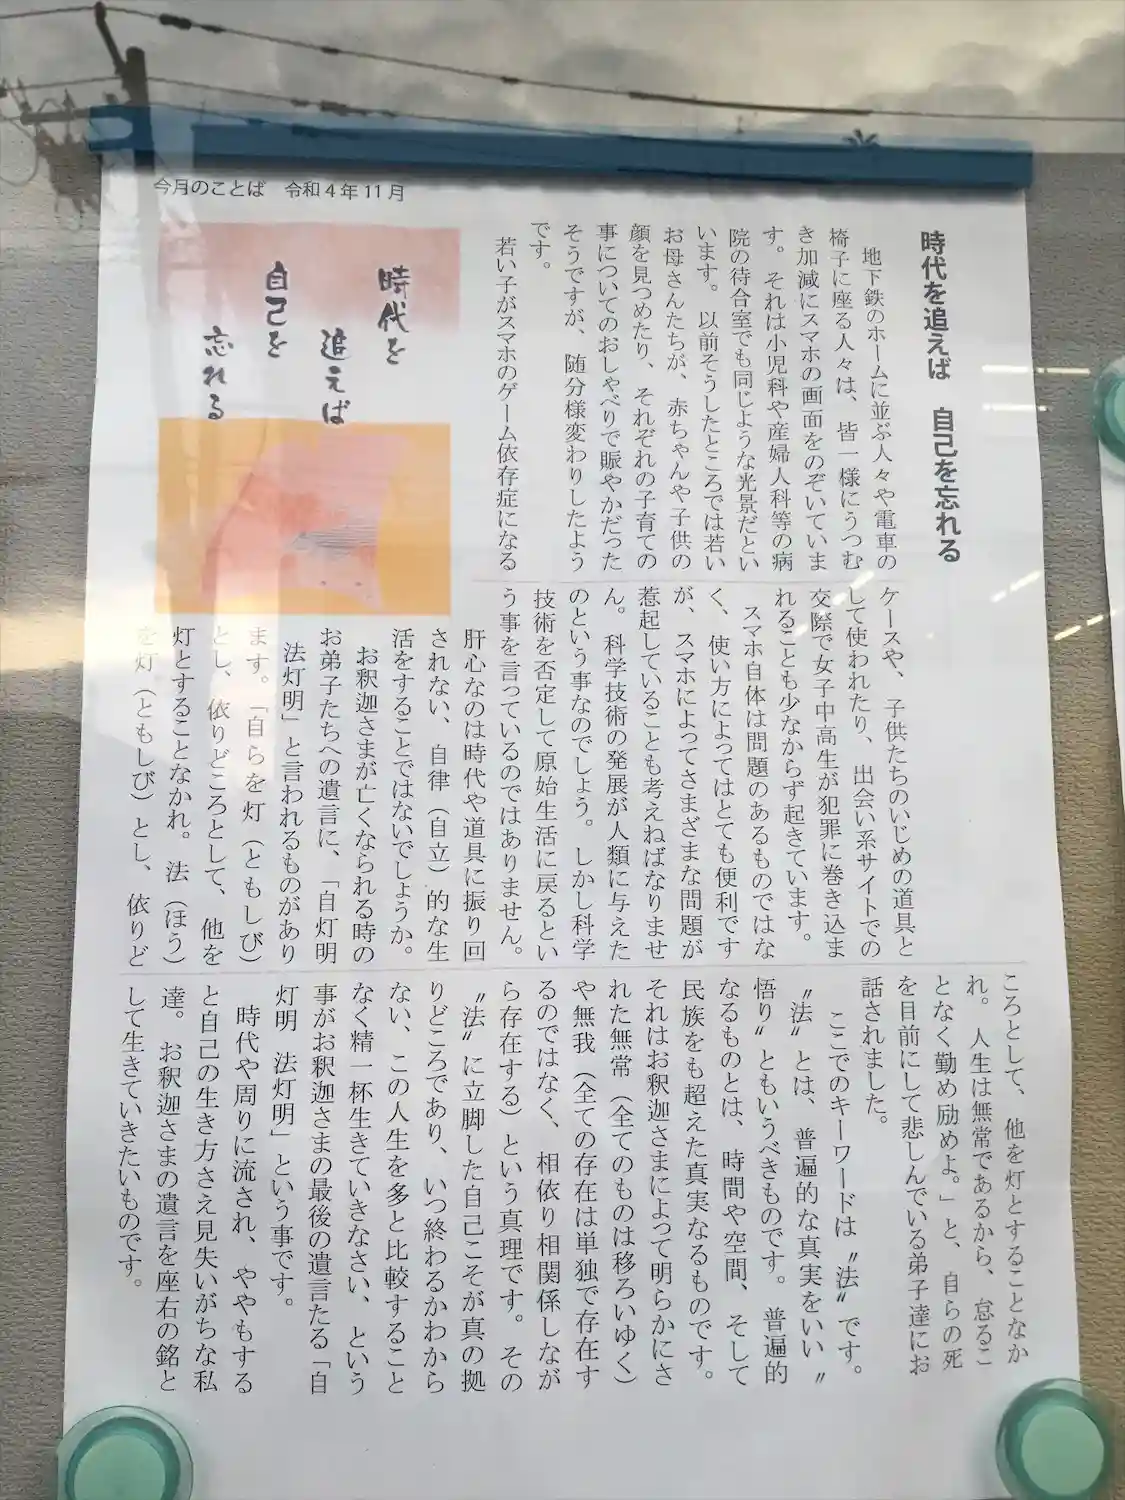 今月のことば　令和4年11月
時代を
追えば
自己を
忘れる
時代を追えば　自己を忘れる
地下鉄のホームに並ぶ人々や電車の
椅子に座る人々は、皆一様にうつむ
き加減にスマホの画面をのぞいていま
す。それは小児科や産婦人科等の病
院の待合室でも同じような光景だとい
います。以前そうしたところでは若い
お母さんたちが、赤ちゃんや子供の
顔を見つめたり、それぞれの子育ての
事についてのおしゃべりで賑やかだった
そうですが、随分様変わりしたよう
です。
若い子がスマホのゲーム依存症になる
ケースや、子供たちのいじめの道具と
して使われたり、出会い系サイトでの
交際で女子中高生が犯罪に巻き込ま
れることも少なからず起きています。
スマホ自体は問題のあるものではな
く、使い方によってはとても便利です
が、スマホによってさまざまな問題が
惹起していることも考えねばなりませ
ん。科学技術の発展が人類に与えた
のという事なのでしょう。しかし科学
技術を否定して原始生活に戻るとい
う事を言っているのではありません。
肝心なのは時代や道具に振り回
されない、自律（自立）的な生
活をすることではないでしょうか。
お釈迦さまが亡くなられる時の
お弟子たちへの遺言に、「自灯明
法灯明」と言われるものがあり
ます。「自らを灯（ともしび）
とし、依りどころとして、他を
灯とすることなかれ。法（ほう）
を灯（ともしび）とし、依りど
ころとして、他を灯とすることなか
れ。人生は無常であるから、怠るこ
となく勤め励めよ。」と、自らの死
を目前にして悲しんでいる弟子達にお
話されました。
ここでのキーワードは〝法〟です。
〝法〟とは、普遍的な真実をいい〝
悟り〟ともいうべきものです。普遍的
なるものとは、時間や空間、そして
民族をも超えた真実なるものです。
それはお釈迦さまによって明らかにさ
れた無常（全てのものは移ろいゆく）
や無我（全ての存在は単独で存在す
るのではなく、相依り相関係しなが
ら存在する）という真理です。その
〝法〟に立脚した自己こそが真の拠
りどころであり、いつ終わるかわから
ない、この人生を多と比較すること
なく精一杯生きていきなさい、という
事がお釈迦さまの最後の遺言たる「自
灯明　法灯明」という事です。
時代や周りに流され、ややもする
と自己の生き方さえ見失いがちな私
達。お釈迦さまの遺言を座右の銘と
して生きていきたいものです。